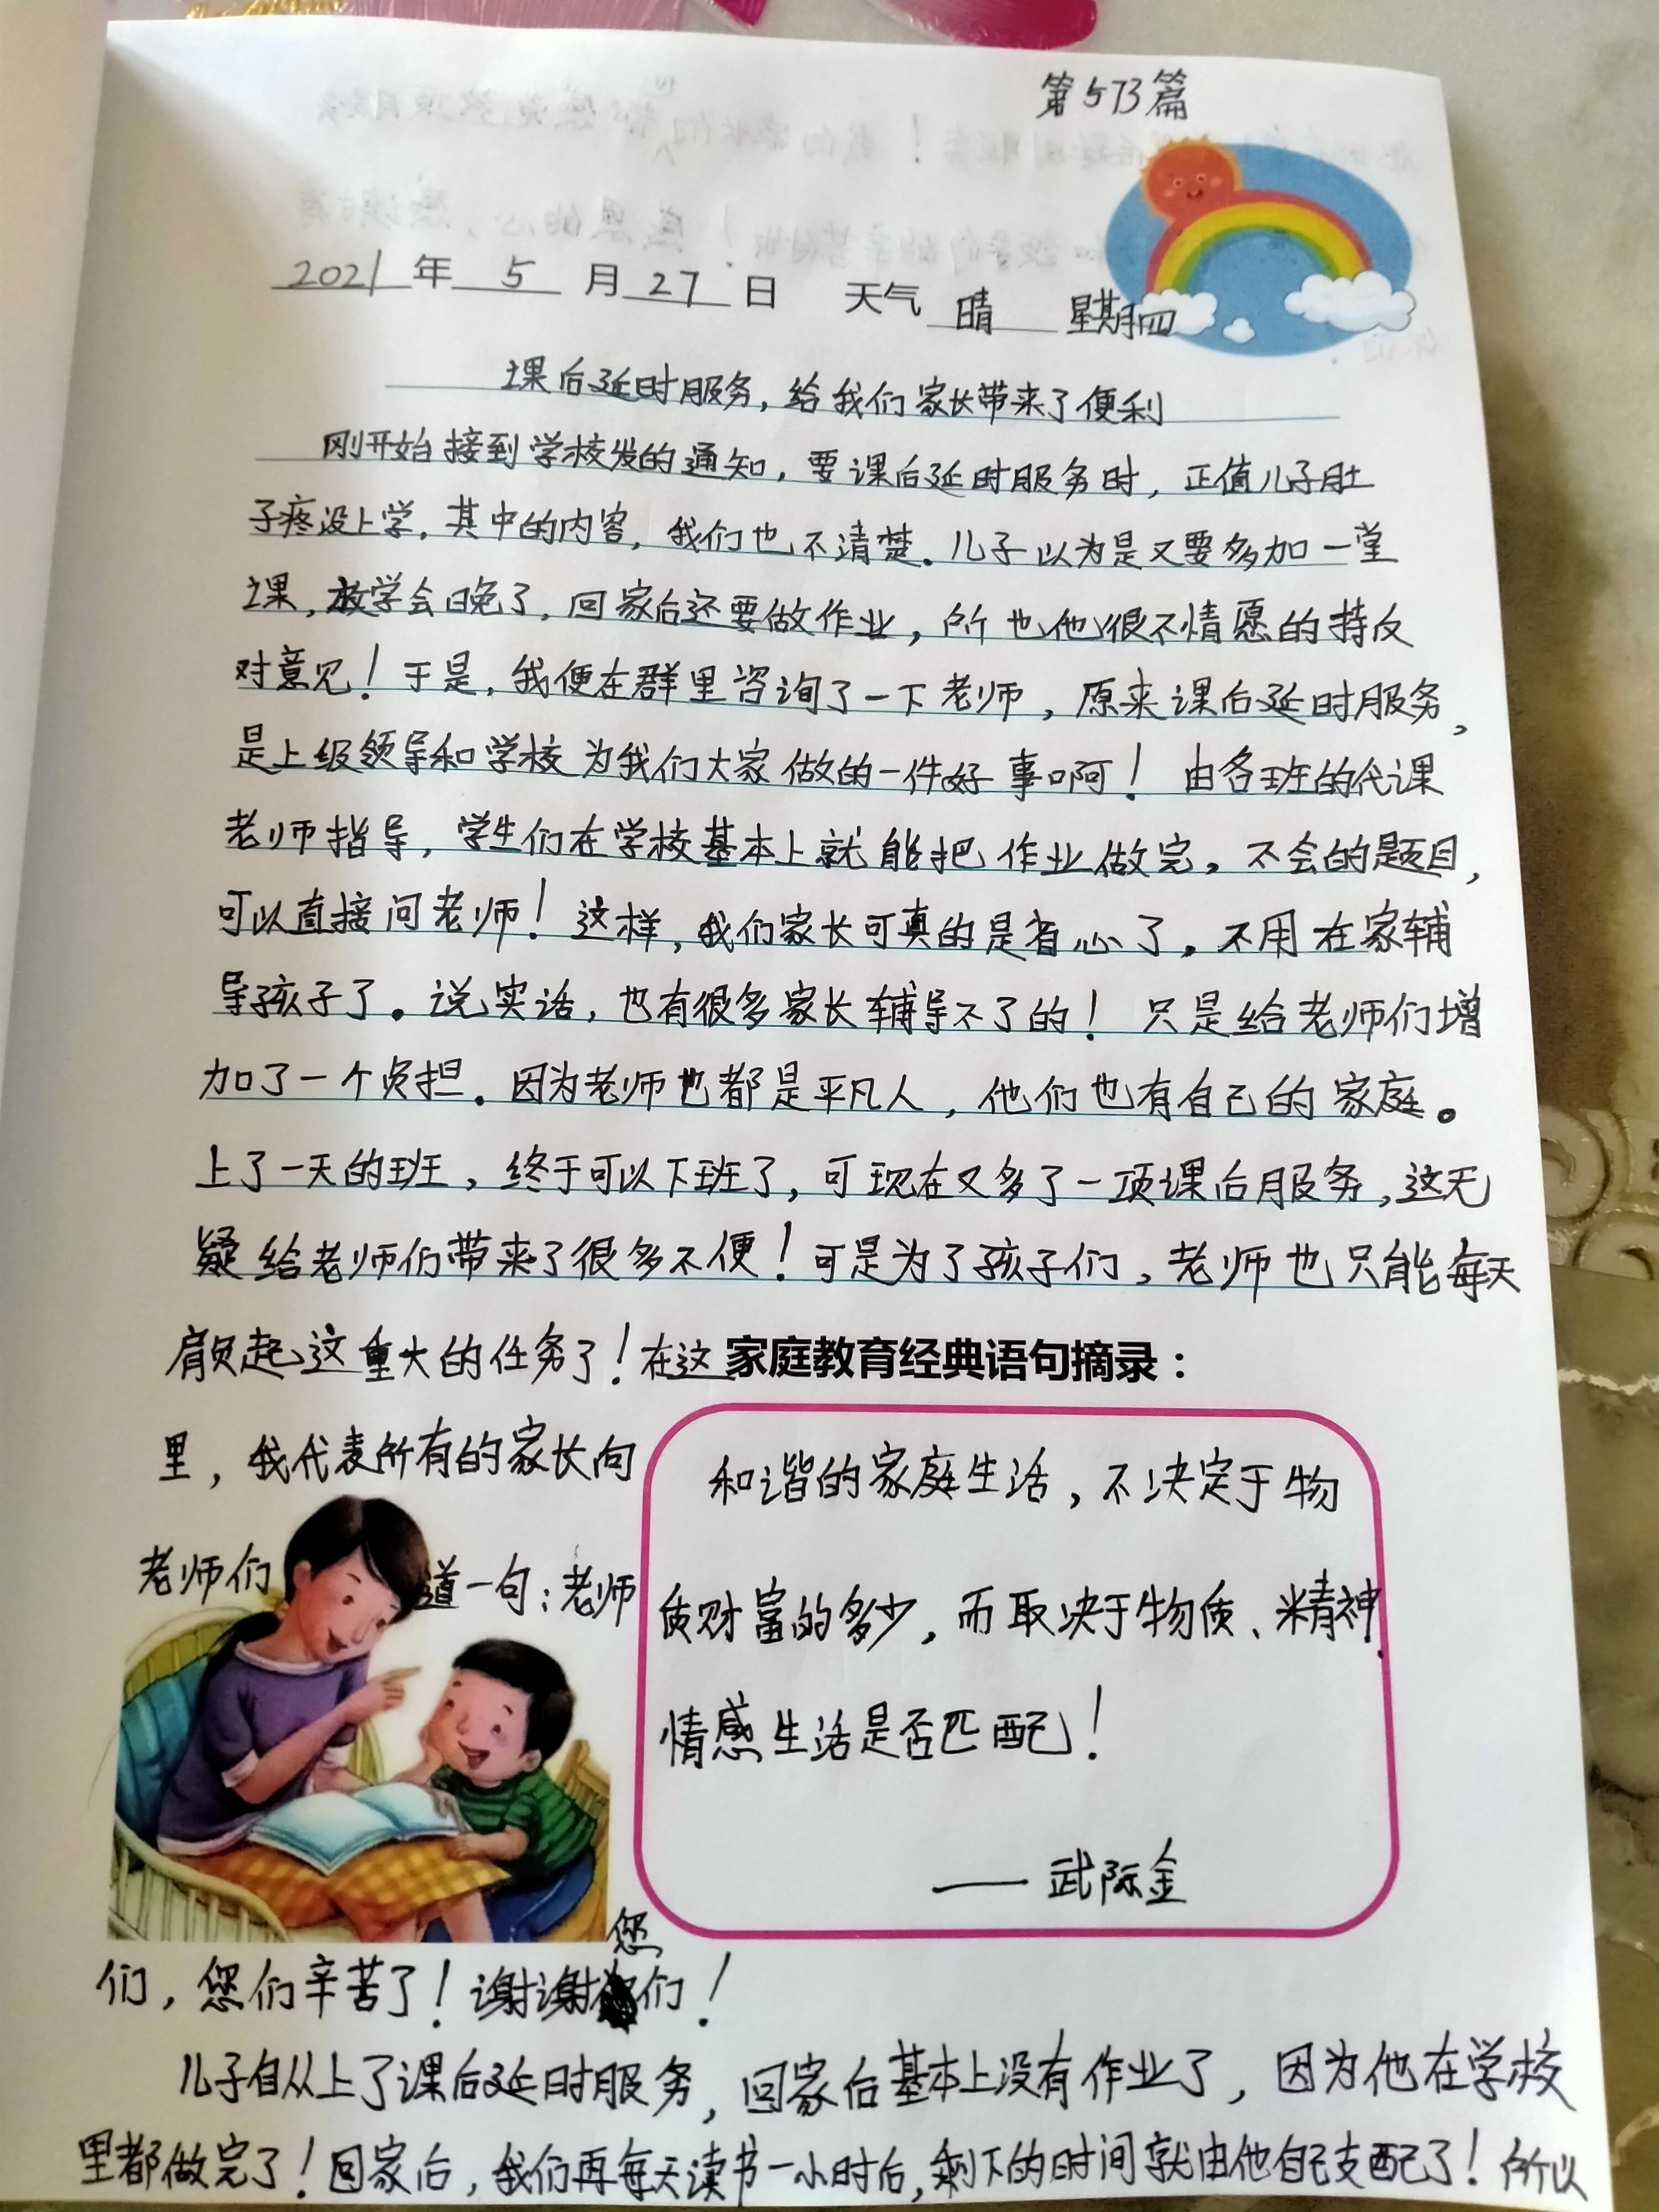 第573篇
2021年5月27日 天气 晴 星期四
课后延时服务,给我们家长带来了便利
刚开始接到学校发的通知,要课后延时服务时,正值儿子肚
子疼没上学。其中的内容,我们也不清楚。儿子以为是又要多加一堂
课,放学会晚了,回家后还要做作业,所也他很不情愿的持反
对意见!于是,我便在群里咨询了一下老师,原来课后延时服务,
是上级领导和学校为我们大家做的一件好事啊!由各班的代课
老师指导,学生们在学校基本上就能把作业做完。不会的题目,
可以直接问老师!这样,我们家长可真的是省心了。不用在家辅
导孩子了。说实话,也有很多家长辅导不了的!只是给老师们增
加了一个负担。因为老师也都是平凡人,他们也有自己的家庭。
上了一天的班,终于可以下班了,可现在又多了一项课后服务,这无
疑给老师们带来了很多不便!可是为了孩子们,老师也只能每天
肩负起这重大的任务了!在这
里,我代表所有的家长向
老师们道一句:老师
家庭教育经典语句摘录:
和谐的家庭生活,不决定于物
质财富的多少,而取决于物质、精神、
情感生活是否匹配!
——武际金
们,您们辛苦了!谢谢您们!
儿子自从上了课后延时服务,回家后基本上没有作业了,因为他在学校
里都做完了!回家后,我们再每天读书一小时后,剩下的时间就由他自己支配了!所以